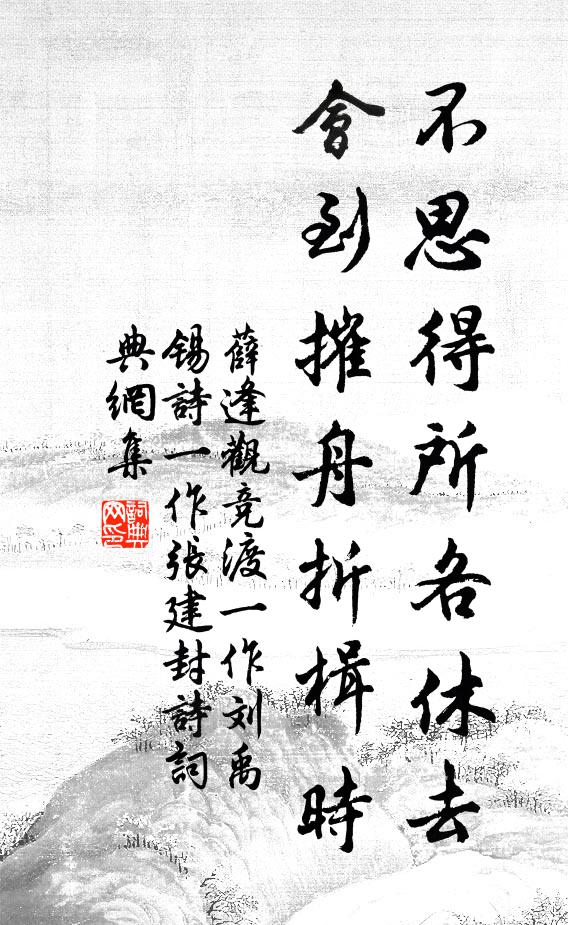 不思得所各休去
會到摧舟折楫時
薛逢觀竞渡一作刘禹
锡詩一作張建封詩詞
典網集
詞典
网印